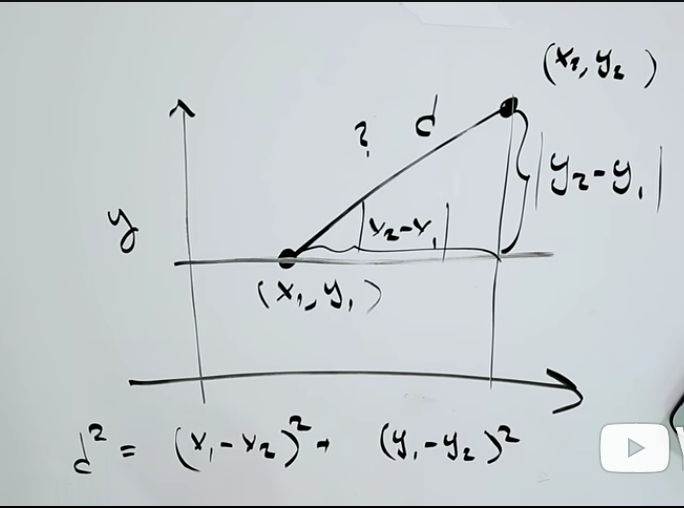 (x₂, y₂)
? d
|y₂-y₁|
y
|x₂-x₁|
(x₁, y₁)
d² = (x₁-x₂)² + (y₁-y₂)²